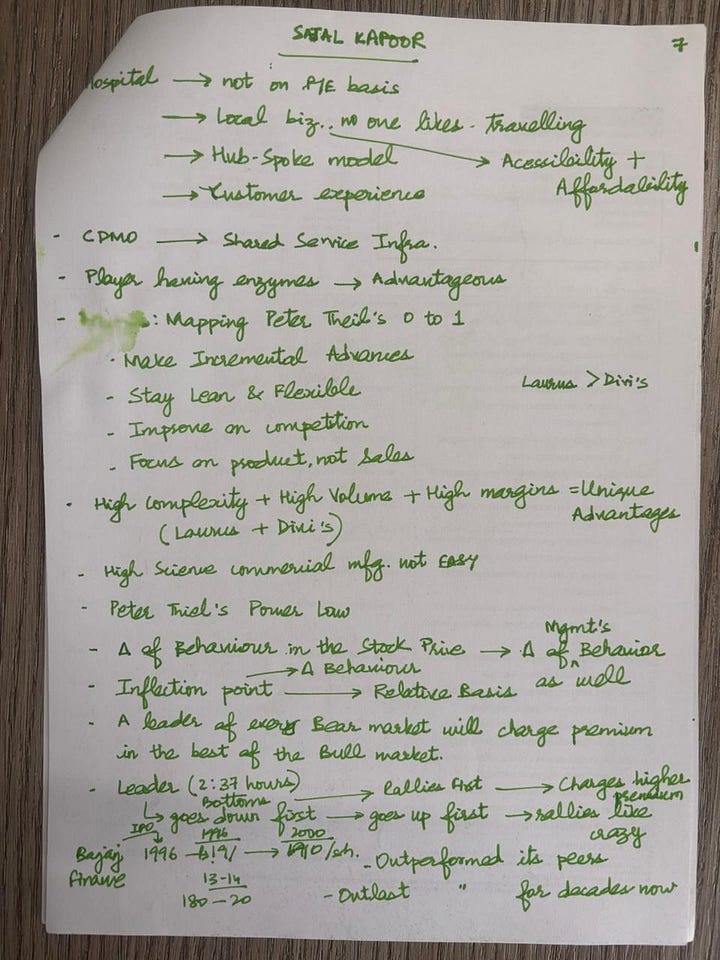 SAJAL KAPOOR
7
Hospital → not on P/E basis
→ Local biz.. no one likes - Travelling
→ Hub-Spoke model → Acessibility + Affordability
→ Customer experience
- CDMO → Shared Service Infra.
- Player having enzymes → Advantageous
- : Mapping Peter Theil's 0 to 1
· Make Incremental Advances
- Stay Lean & Flexible
Laurus > Divi's
- Improve on competition
- Focus on product, not sales
· High Complexity + High Volume + High margins = Unique Advantages
(Laurus + Divi's)
- High Science commercial mfg. not EASY
- Peter Thiel's Power Law
- Δ of Behaviour in the Stock Price → Δ of Mgmt's Behavior as well
→ Δ Behaviour
- Inflection point → Relative Basis
- A leader of every Bear market will charge premium
in the best of the Bull market.
- Leader (2:37 hours) → Rallies first → Charges higher premium
Bottoms
↳ goes down first → goes up first → rallies like crazy
IPO 1996 2000
Bajaj Finance 1996 → → /sh. - Outperformed its peers
13-14
180-20 - Outlast " for decades now